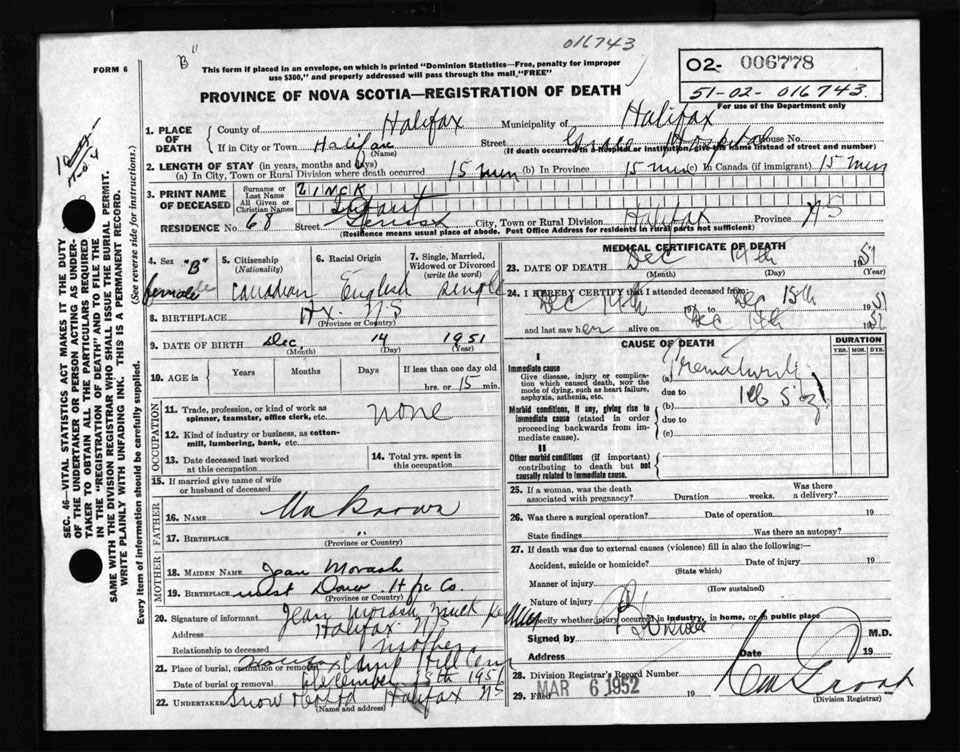 016743
FORM 6
"B"
This form if placed in an envelope, on which is printed "Dominion Statistics—Free, penalty for improper
use $300," and properly addressed will pass through the mail "FREE"
O2- 006778
51-02-016743
PROVINCE OF NOVA SCOTIA—REGISTRATION OF DEATH
For use of the Department only
1. PLACE OF DEATH
County of Halifax Municipality of Halifax
If in City or Town Halifax Street Grace Hospital House No.
(Name) (If death occurred in a hospital or institution give the name instead of street and number)
2. LENGTH OF STAY (in years, months and days)
(a) In City, Town or Rural Division where death occurred 15 min (b) In Province 15 min (c) In Canada (if immigrant) 15 min
3. PRINT NAME OF DECEASED
Surname or Last Name ZINCK
All Given or Christian Names Infant
RESIDENCE No. 68 Street City, Town or Rural Division Halifax Province NS
(Residence means usual place of abode. Post Office Address for residents in rural parts not sufficient)
4. Sex "B" female
5. Citizenship (Nationality) Canadian
6. Racial Origin English
7. Single, Married, Widowed or Divorced (write the word) single
8. BIRTHPLACE Hx. N.S
(Province or Country)
9. DATE OF BIRTH Dec. 14 1951
(Month) (Day) (Year)
10. AGE in Years Months Days If less than one day old
hrs. or 15 min.
OCCUPATION
11. Trade, profession, or kind of work as spinner, teamster, office clerk, etc. none
12. Kind of industry or business, as cotton-mill, lumbering, bank, etc.
13. Date deceased last worked at this occupation
14. Total yrs. spent in this occupation
15. If married give name of wife or husband of deceased
FATHER
16. NAME
17. BIRTHPLACE "
(Province or Country)
MOTHER
18. MAIDEN NAME Jean Morash
19. BIRTHPLACE West Hx Co.
(Province or Country)
20. Signature of informant Jean Morash Zinck
Address Halifax N.S
Relationship to deceased mother
21. Place of burial, cremation or removal Halifax Camp Hill Cem
Date of burial or removal December 1951
22. UNDERTAKER Snow Halifax NS
(Name and address)
MEDICAL CERTIFICATE OF DEATH
23. DATE OF DEATH Dec 14th 1951
(Month) (Day) (Year)
24. I HEREBY CERTIFY that I attended deceased from
Dec 14th 19 to Dec 15th 1951
and last saw her alive on Dec 1951
CAUSE OF DEATH
DURATION
YRS. MOS. DYS.
I
Immediate cause
Give disease, injury or complication which caused death, NOT the mode of dying, such as heart failure, asphyxia, asthenia, etc.
(a) Prematurity
due to
Morbid conditions, if any, giving rise to immediate cause (stated in order proceeding backwards from immediate cause).
(b)
due to
(c)
II
Other morbid conditions (if important) contributing to death but not causally related to immediate cause.
25. If a woman, was the death associated with pregnancy? Duration weeks. Was there a delivery?
26. Was there a surgical operation? Date of operation 19
State findings Was there an autopsy?
27. If death was due to external causes (violence) fill in also the following:—
Accident, suicide or homicide? Date of injury 19
(State which)
Manner of injury
(How sustained)
Nature of injury
Specify whether injury occurred in industry, in home, or in public place
Signed by M.D.
Address Date 19
28. Division Registrar's Record Number
29. Filed MAR 6 1952 19
(Division Registrar)
SEC. 46—VITAL STATISTICS ACT MAKES IT THE DUTY
OF THE UNDERTAKER OR PERSON ACTING AS UNDER-
TAKER TO OBTAIN ALL THE PARTICULARS REQUIRED
IN THE "REGISTRATION OF DEATH" AND TO FILE THE
SAME WITH THE DIVISION REGISTRAR WHO SHALL ISSUE THE BURIAL PERMIT.
WRITE PLAINLY WITH UNFADING INK. THIS IS A PERMANENT RECORD.
Every item of information should be carefully supplied. (See reverse side for instructions.)